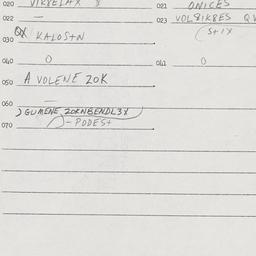 020 VIRVELAX X 021 ONICES
022 — 023 VOLSIKBES QV
(StIX
030 QX KALOStN
040 O 041 O
050 A VOLENE ZOK
060 —
) GUMENE ZORNBENDL3X
070 - PODESt